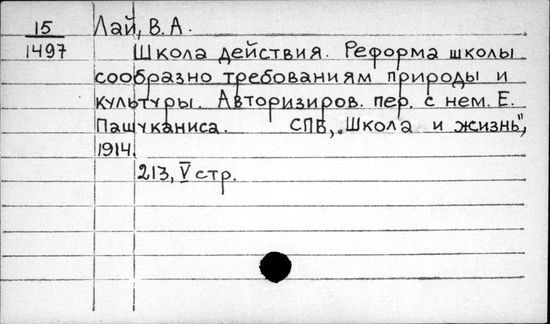 15 Лай, В. А.
1497 Школа действия. Реформа школы
сообразно требованиям природы и
культуры. Авторизиров. пер. с нем. Е.
Пашуканиса. СПБ, „Школа и жизнь",
1914.
213, V стр.